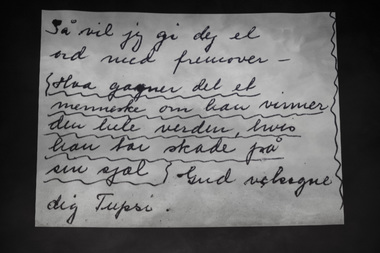 Så vil jeg gi dig et
ord med fremover –
{Hva gagner det et
menneske om han vinner
den hele verden, hvis
han tar skade på
sin sjel} Gud velsigne
dig Tupsi.